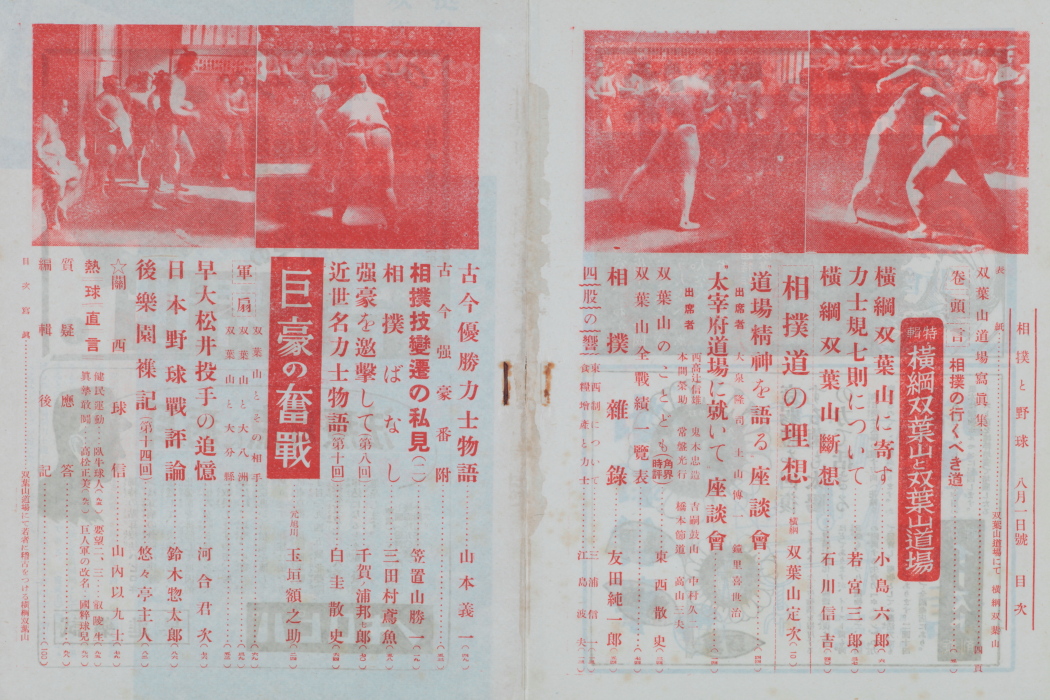 相撲と野球 八月一日號 目次
表紙 双葉山道場にて 横綱双葉山
双葉山道場寫眞集 四頁
巻頭言 相撲の行くべき道
特輯 横綱双葉山と双葉山道場
横綱双葉山に寄す 小島六郎
力士規七則について 若宮三郎
横綱双葉山斷想 石川信吉
相撲道の理想 横綱 双葉山定次
道場精神を語る座談會
出席者 大泉隆司 土山博一 鏡里喜世治
太宰府道場に就いて座談會
出席者
双葉山のことども(角界時評) 東西散史
双葉山全戰績一覽表
相撲雜錄 友田純一郎
四股の響 東西制について 三浦信一
食糧增產と力士 江島波夫
古今優勝力士物語 山本義一
古今强豪番附
相撲技變遷の私見(一) 笠置山勝一
相撲ばなし 三田村鳶魚
强豪を邀擊して(第八回) 千賀浦邦郎
近世名力士物語(第十回) 白圭散史
巨豪の奮戰 元旭川 玉垣額之助
軍扇 双葉山とその相手
双葉山と大八洲
双葉山と大分縣
早大松井投手の追憶 河合君次
日本野球戰評論 鈴木惣太郎
後樂園襍記(第十四回) 悠々亭主人
☆關西球信 山內以九士
熱球直言 健民運動 臥牛球人 要望二、三 叡陵生
眞摯敢鬪 高松正美 巨人軍の改名 國粹球兒
質疑應答
編輯後記
目次寫眞 双葉山道場にて若者に稽古をつける横綱双葉山